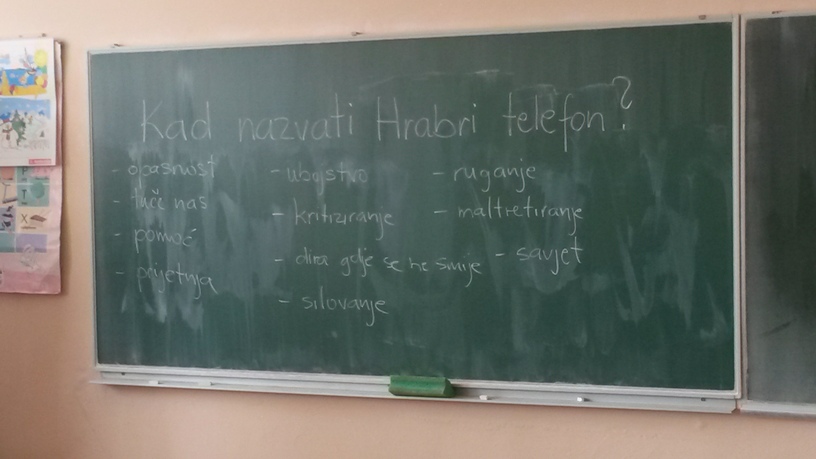 Kad nazvati Hrabri telefon?
- opasnost
- tuče nas
- pomoć
- prijetnja
- ubojstvo
- kritiziranje
- dira gdje se ne smije
- silovanje
- ruganje
- maltretiranje
- savjet